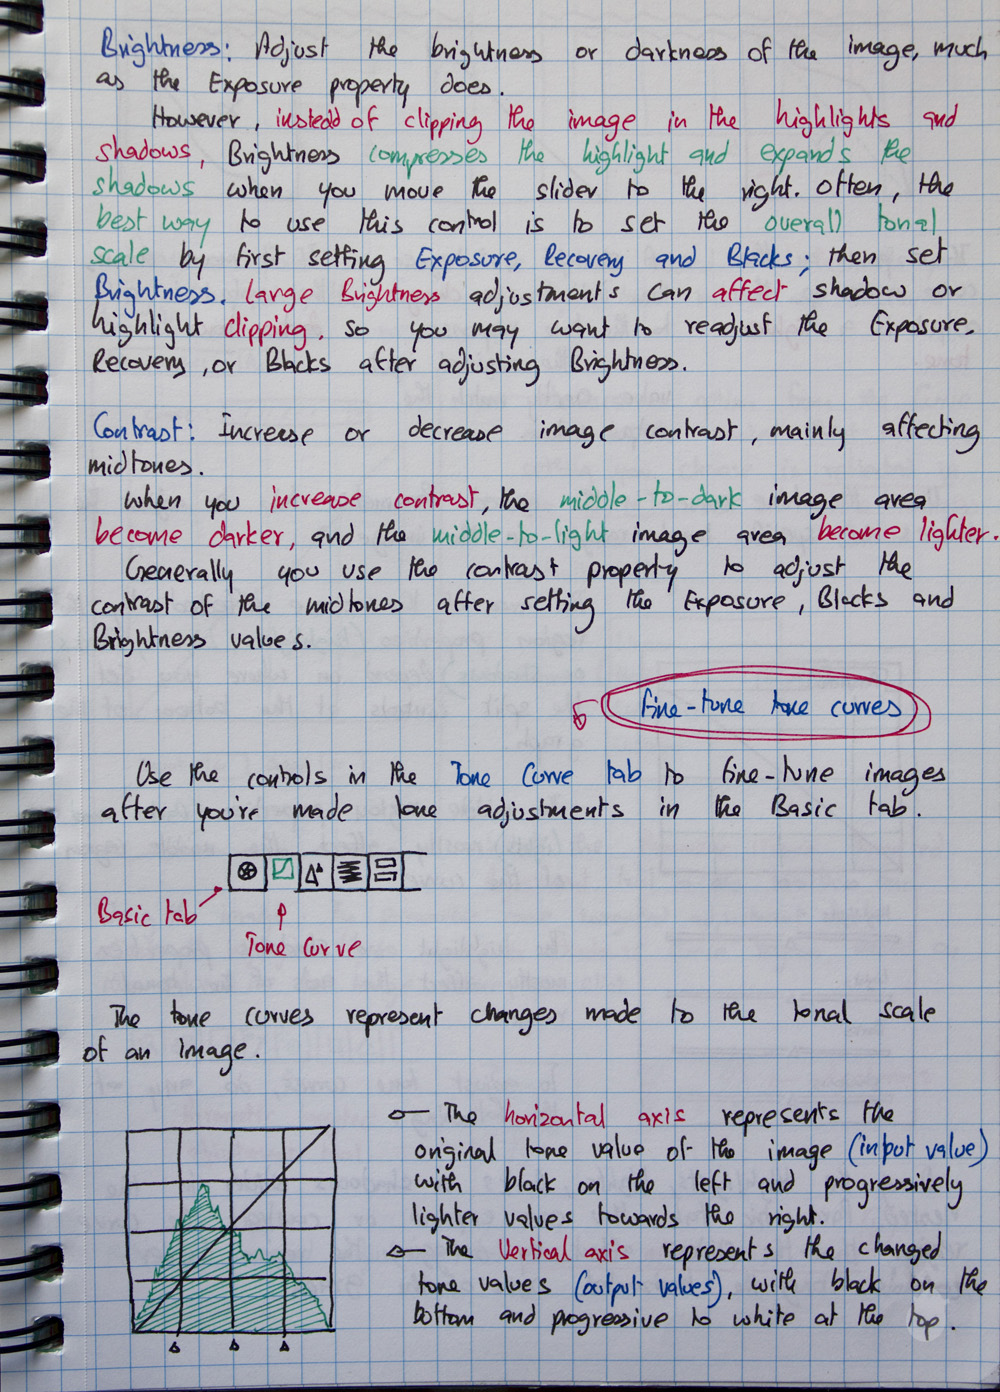 Brightness: Adjust the brightness or darkness of the image, much
as the Exposure property does.
However, instead of clipping the image in the highlights and
shadows, Brightness compresses the highlight and expands the
shadows when you move the slider to the right. Often, the
best way to use this control is to set the overall tonal
scale by first setting Exposure, Recovery and Blacks; then set
Brightness. Large Brightness adjustments can affect shadow or
highlight clipping. So you may want to readjust the Exposure,
Recovery, or Blacks after adjusting Brightness.
Contrast: Increase or decrease image contrast, mainly affecting
midtones.
When you increase contrast, the middle-to-dark image area
become darker, and the middle-to-light image area become lighter.
Generally you use the contrast property to adjust the
contrast of the midtones after setting the Exposure, Blacks and
Brightness values.
fine-tune tone curves
Use the controls in the Tone Curve tab to fine-tune images
after you're made tone adjustments in the Basic tab.
Basic tab
Tone Curve
The tone curves represent changes made to the tonal scale
of an image.
The horizontal axis represents the
original tone value of the image (input value)
with black on the left and progressively
lighter values towards the right.
The Vertical axis represents the changed
tone values (output values), with black on the
bottom and progressive to white at the top.